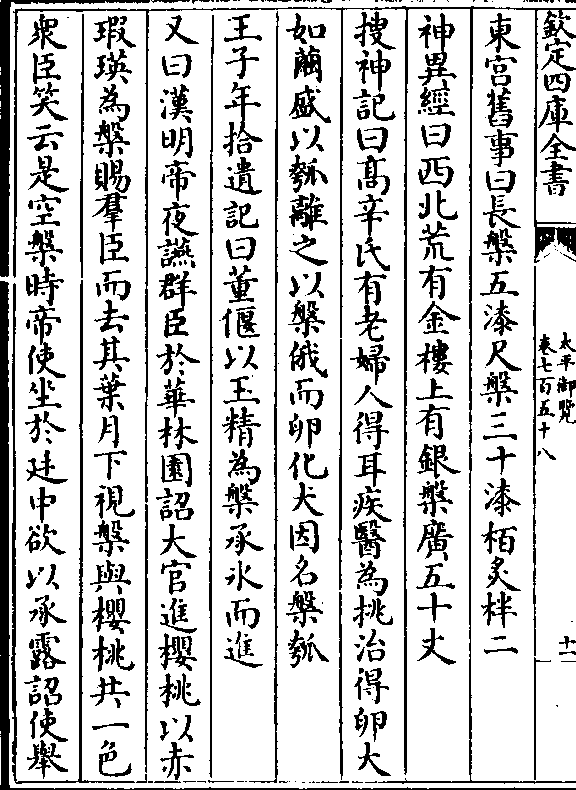 欽定四庫全書
太平御覽
卷七百五十八
十一
東宮舊事曰長槃五漆尺槃三十漆栢炙柈二
神異經曰西北荒有金樓上有銀槃廣五十丈
搜神記曰髙辛氏有老婦人得耳疾醫為挑治得卵大
如繭盛以瓠離之以槃俄而卵化犬因名槃瓠
王子年拾遺記曰董偃以玉精為槃承氷而進
又曰漢明帝夜讌群臣於華林園詔大官進櫻桃以赤
瑕瑛為槃賜羣臣而去其葉月下視槃與櫻桃共一色
衆臣笑云是空槃時帝使坐於廷中欲以承露詔使舉